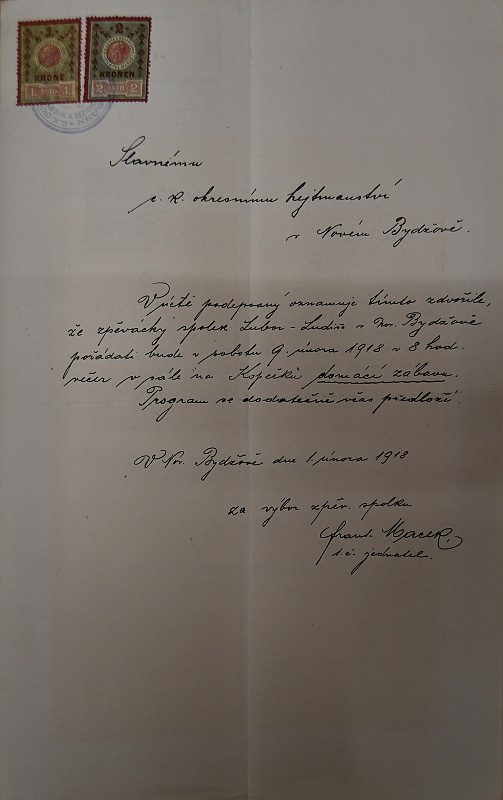 1
KRONE
1 1910 1
2
KRONEN
2 1910 2
Slavnému
c. k. okresnímu hejtmanství
v Novém Bydžově.
V úctě podepsaný oznamuje tímto zdvořile,
že zpěvácký spolek Lubor-Ludiše v Nov. Bydžově
pořádati bude v sobotu 9. února 1918 v 8 hod.
večer v sále na Kopečku domácí zábavu.
Program se dodatečně včas předloží.
V Nov. Bydžově dne 1. února 1918
za výbor zpěv. spolku
Frant. Macek.
t. č. jednatel.